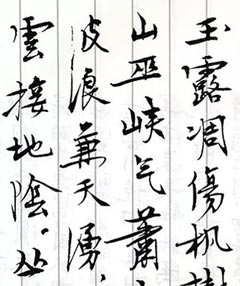 玉露凋傷枫樹
山巫峡气蕭
波浪兼天湧，
雲接地陰。丛